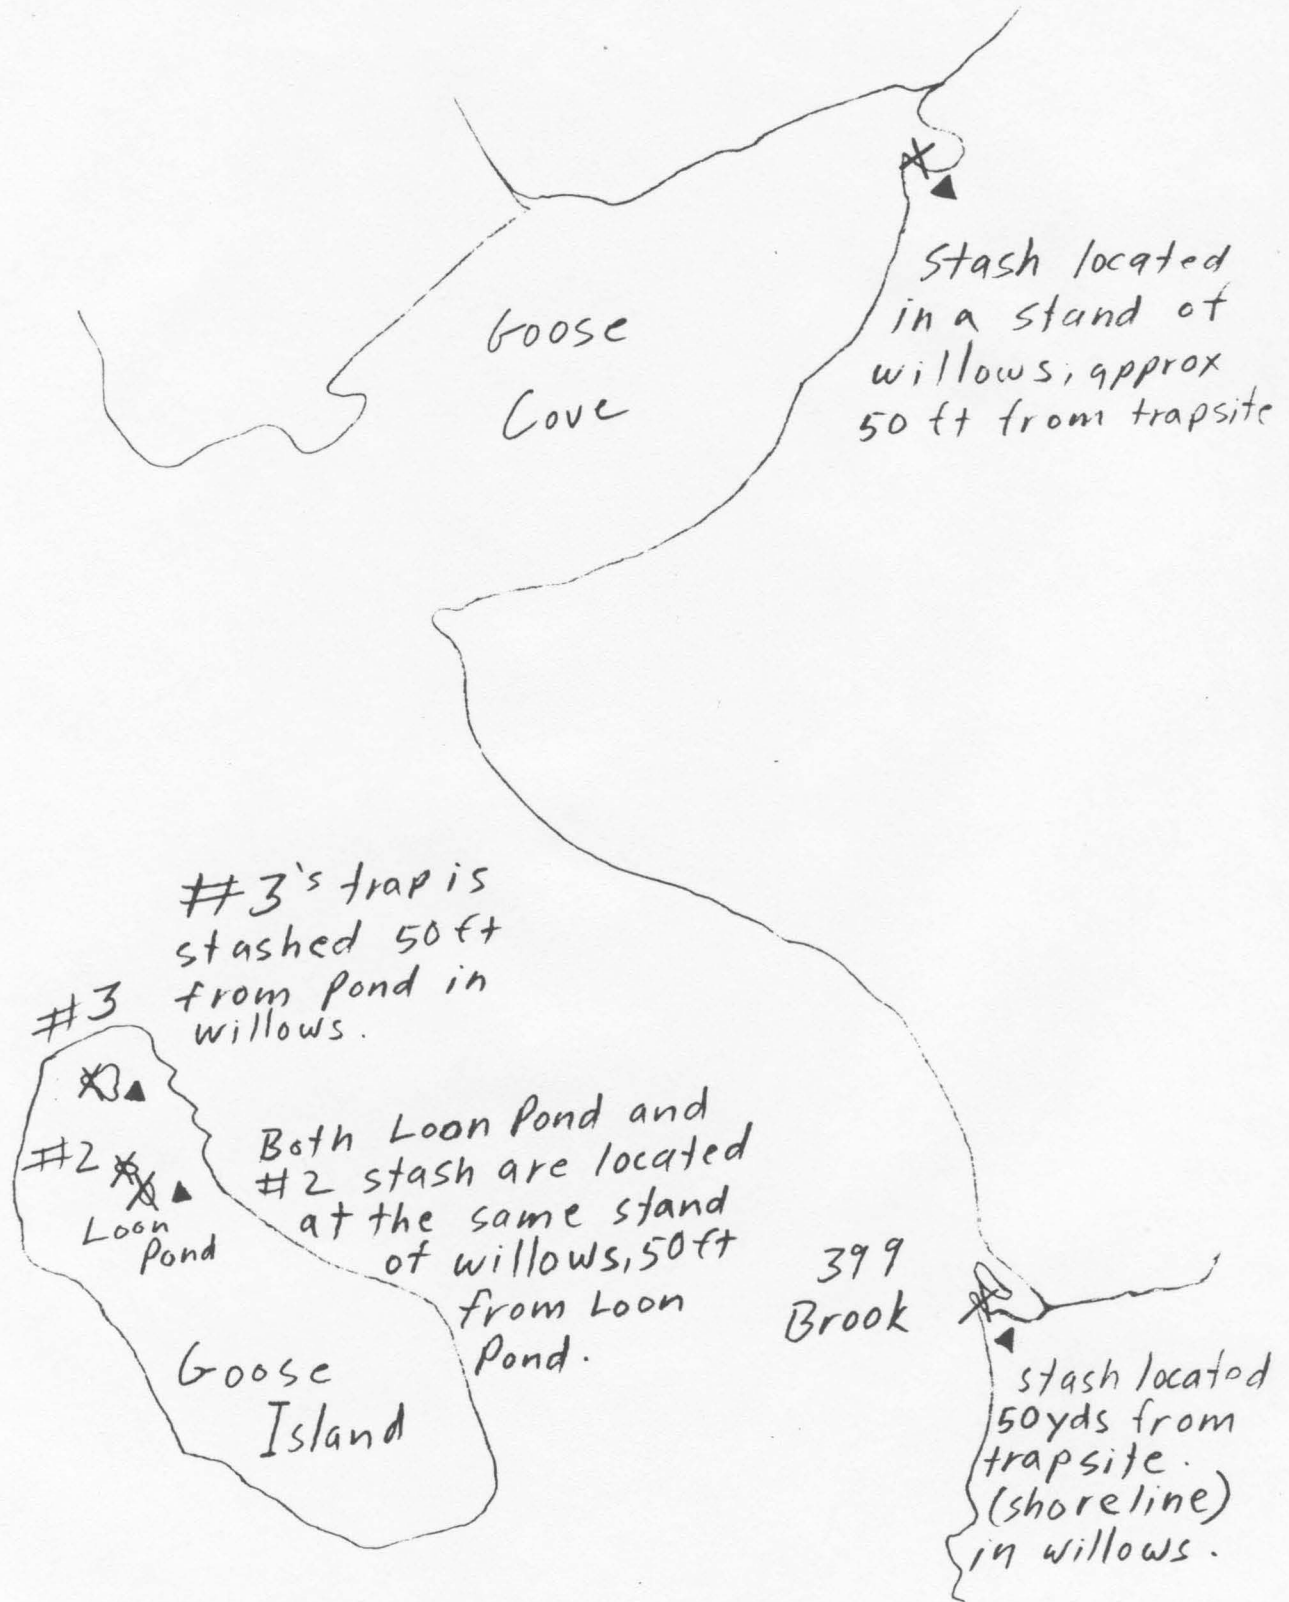 Goose
Cove
Stash located
in a stand of
willows, approx
50 ft from trapsite
#3's trap is
stashed 50 ft
from Pond in
willows.
#3
#2
Loon
Pond
Both Loon Pond and
#2 stash are located
at the same stand
of willows, 50 ft
from Loon
Pond.
Goose
Island
399
Brook
stash located
50yds from
trapsite.
(shoreline)
in willows.